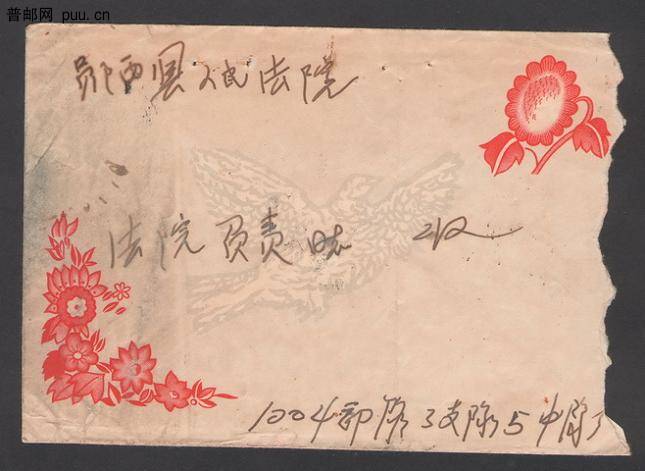 普邮网 puu.cn
郧西县人民法院
法院负责 收
1004部队3支队5中队